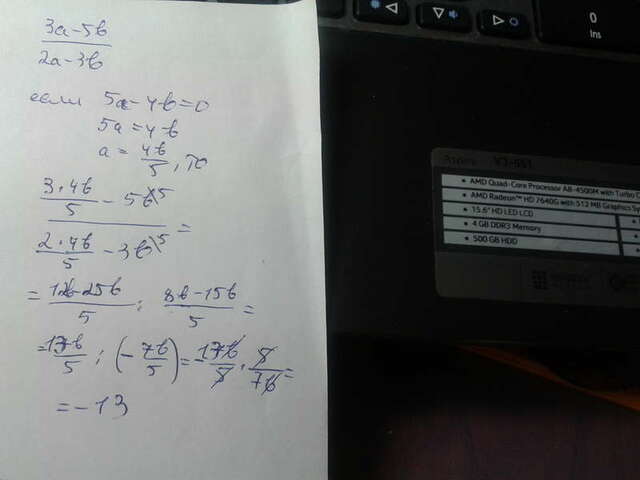 3a-5b
2a-3b
если 5a-4b=0
5a=4b
a = 4b/5, то
3·4b/5 - 5b\5
2·4b/5 - 3b\5 =
= 12b-25b/5 : 8b-15b/5 =
= 13b/5 : (- 7b/5) = -17b/5 · 5/7b =
= -13
0
Ins
Aspire V3-551
AMD Quad-Core Processor A8-4500M with Turbo C
AMD Radeon™ HD 7640G with 512 MB Graphics Sy
15.6" HD LED LCD
4 GB DDR3 Memory
500 GB HDD